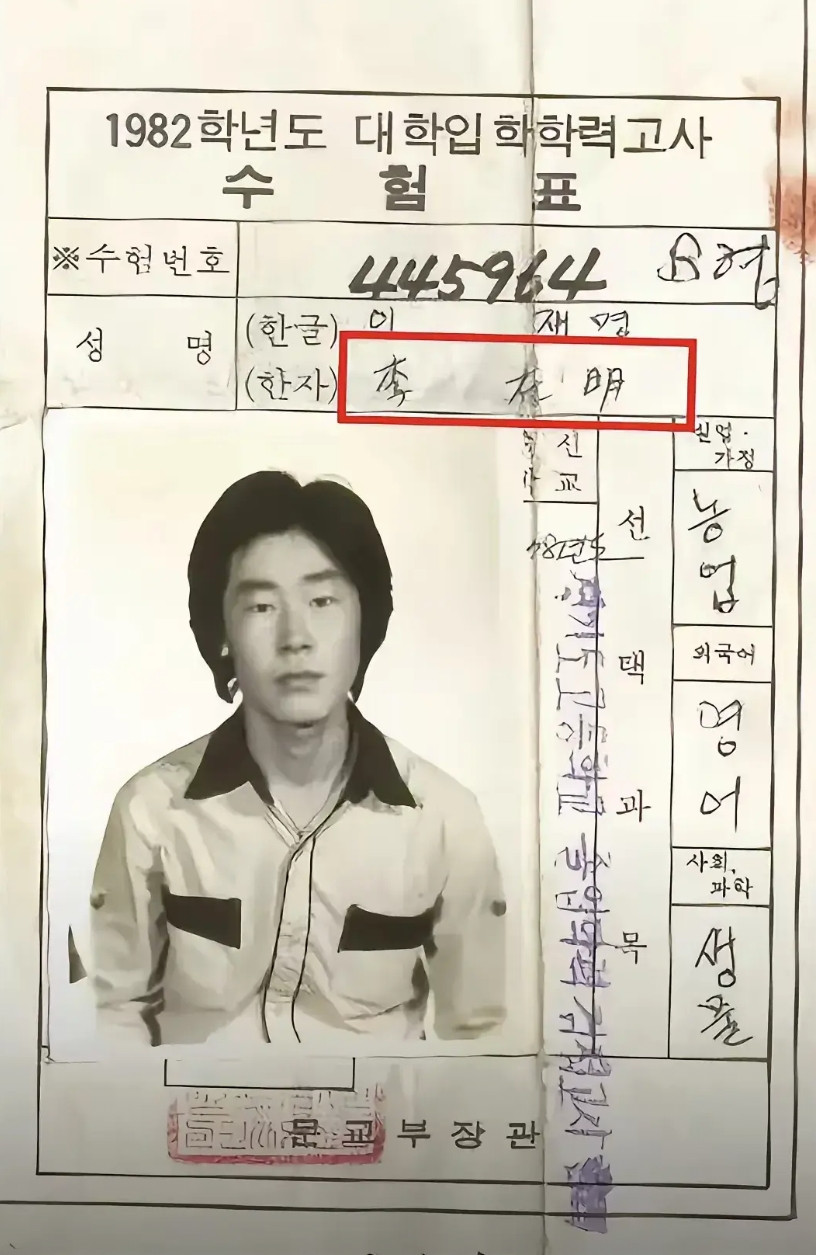 1982학년도 대학입학학력고사
수 험 표
※수험번호 445964 B형
성 명
(한글) 이 재 명
(한자) 李 在 明
실업·
가정
농업
신
교
선택과목
외국어
영어
사회,
과학
생물
경기도 고등학교 졸업학력 검정고시
문교부장관